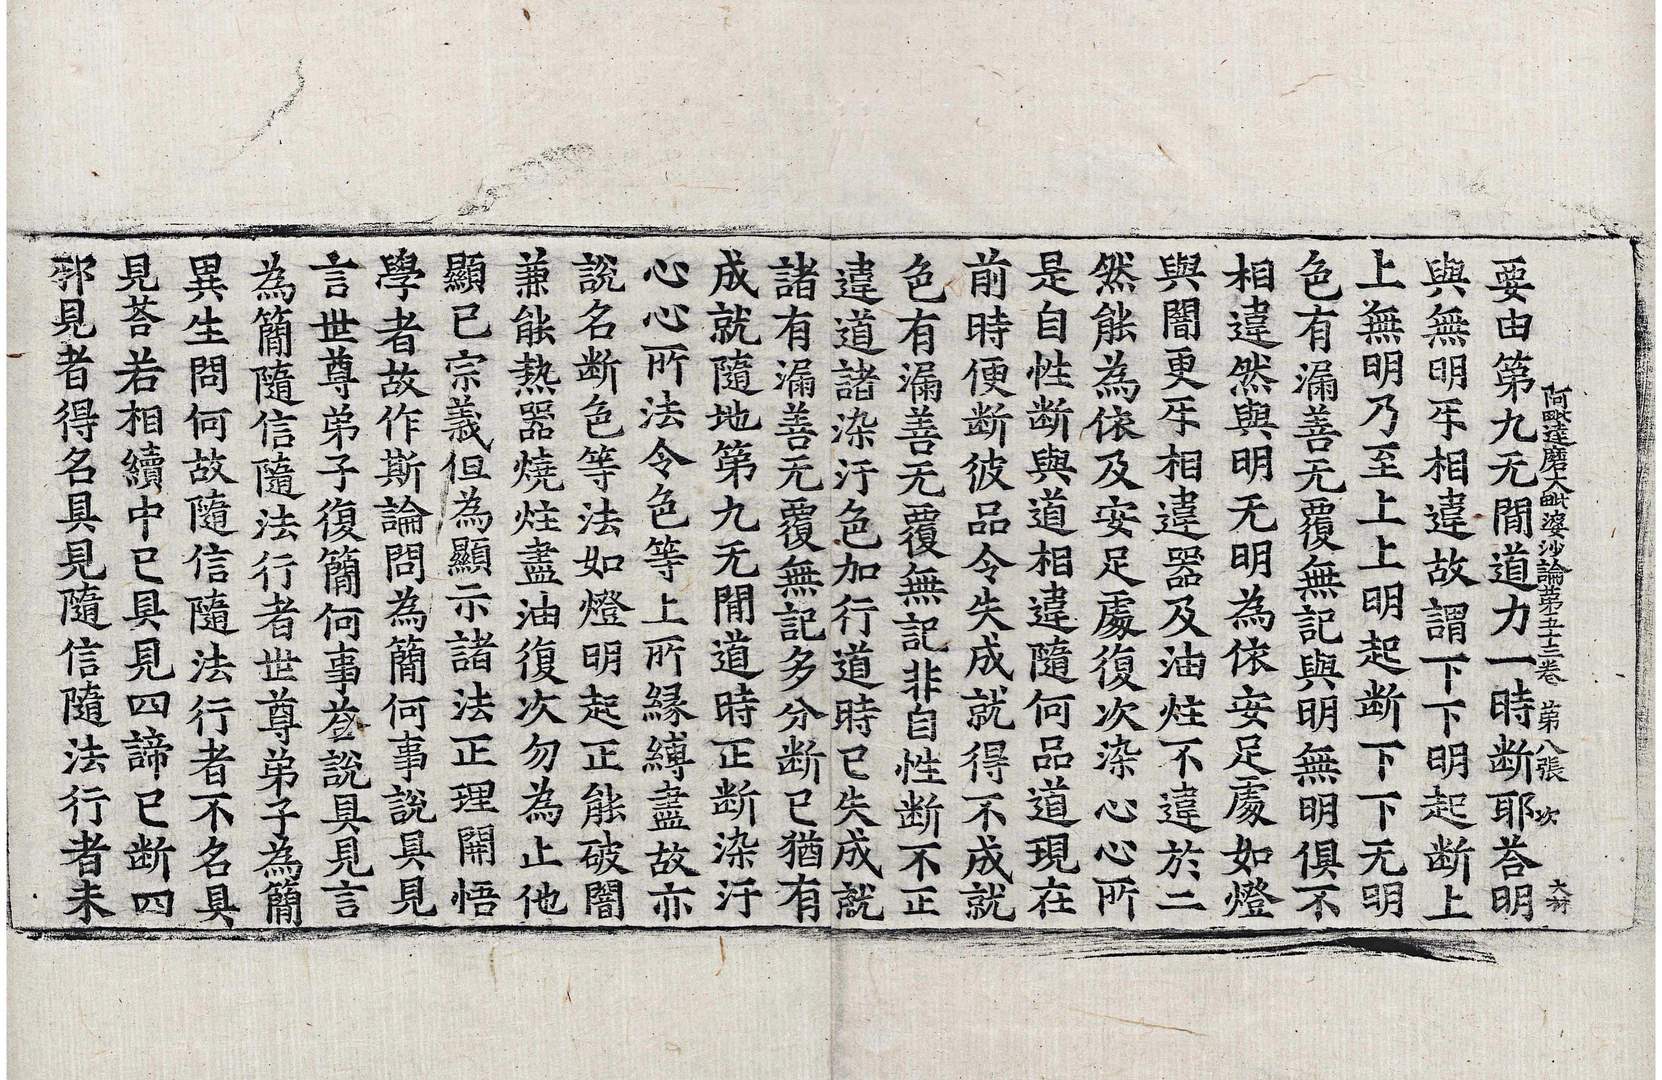 阿毗達磨大毗婆沙論第五十三卷 第八張 次 大材
要由第九无閒道力一時断耶荅明
與無明㸦相違故謂下下明起断上
上無明乃至上上明起断下下无明
色有漏善无覆無記與明無明俱不
相違然與明无明為依安足處如燈
與闇更㸦相違器及油炷不違於二
然能為依及安足處復次染心心所
是自性断與道相違隨何品道現在
前時便断彼品令失成就得不成就
色有漏善无覆無記非自性断不正
違道諸染汙色加行道時已失成就
諸有漏善无覆無記多分断已猶有
成就隨地第九无閒道時正断染汙
心心所法令色等上所縁縛盡故亦
說名断色等法如燈明起正能破闇
兼能熱器燒炷盡油復次勿為止他
顯已宗義但為顯示諸法正理開悟
學者故作斯論問為簡何事說具見
言世尊弟子復簡何事荅說具見言
為簡隨信隨法行者世尊弟子為簡
異生問何故隨信隨法行者不名具
見荅若相續中已具見四諦已断四
邪見者得名具見隨信隨法行者未